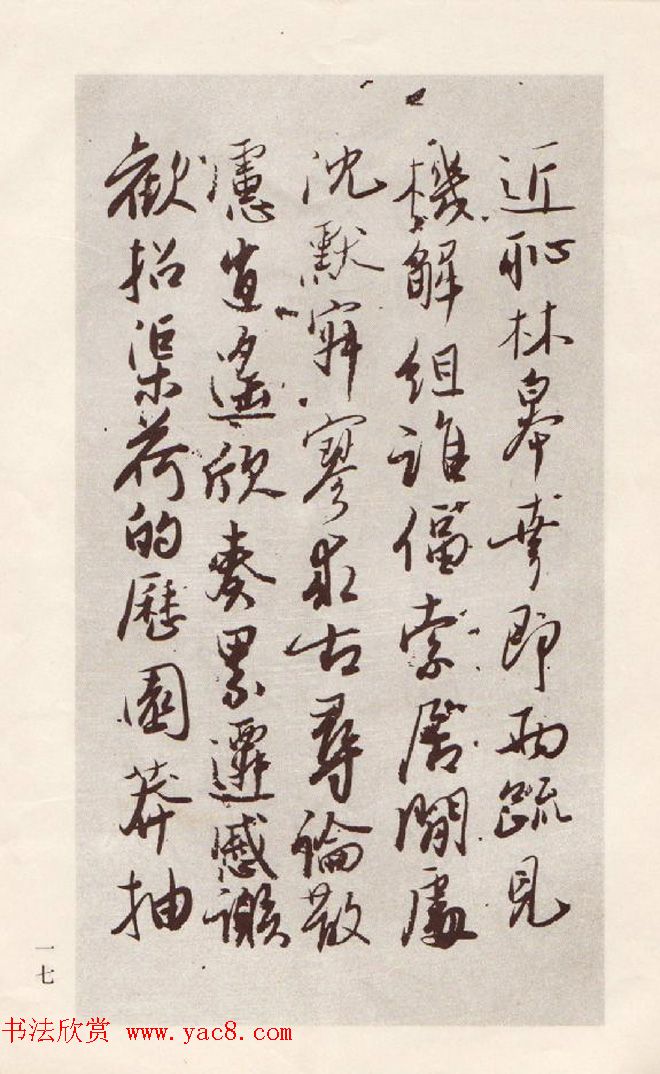 近恥林皋幸即兩疏見
機解組誰逼索居閒處
沈默寂寥求古尋論散
慮逍遙欣奏累遣慼謝
歡招渠荷的歷園莽抽
一七
书法欣赏 www.yac8.com